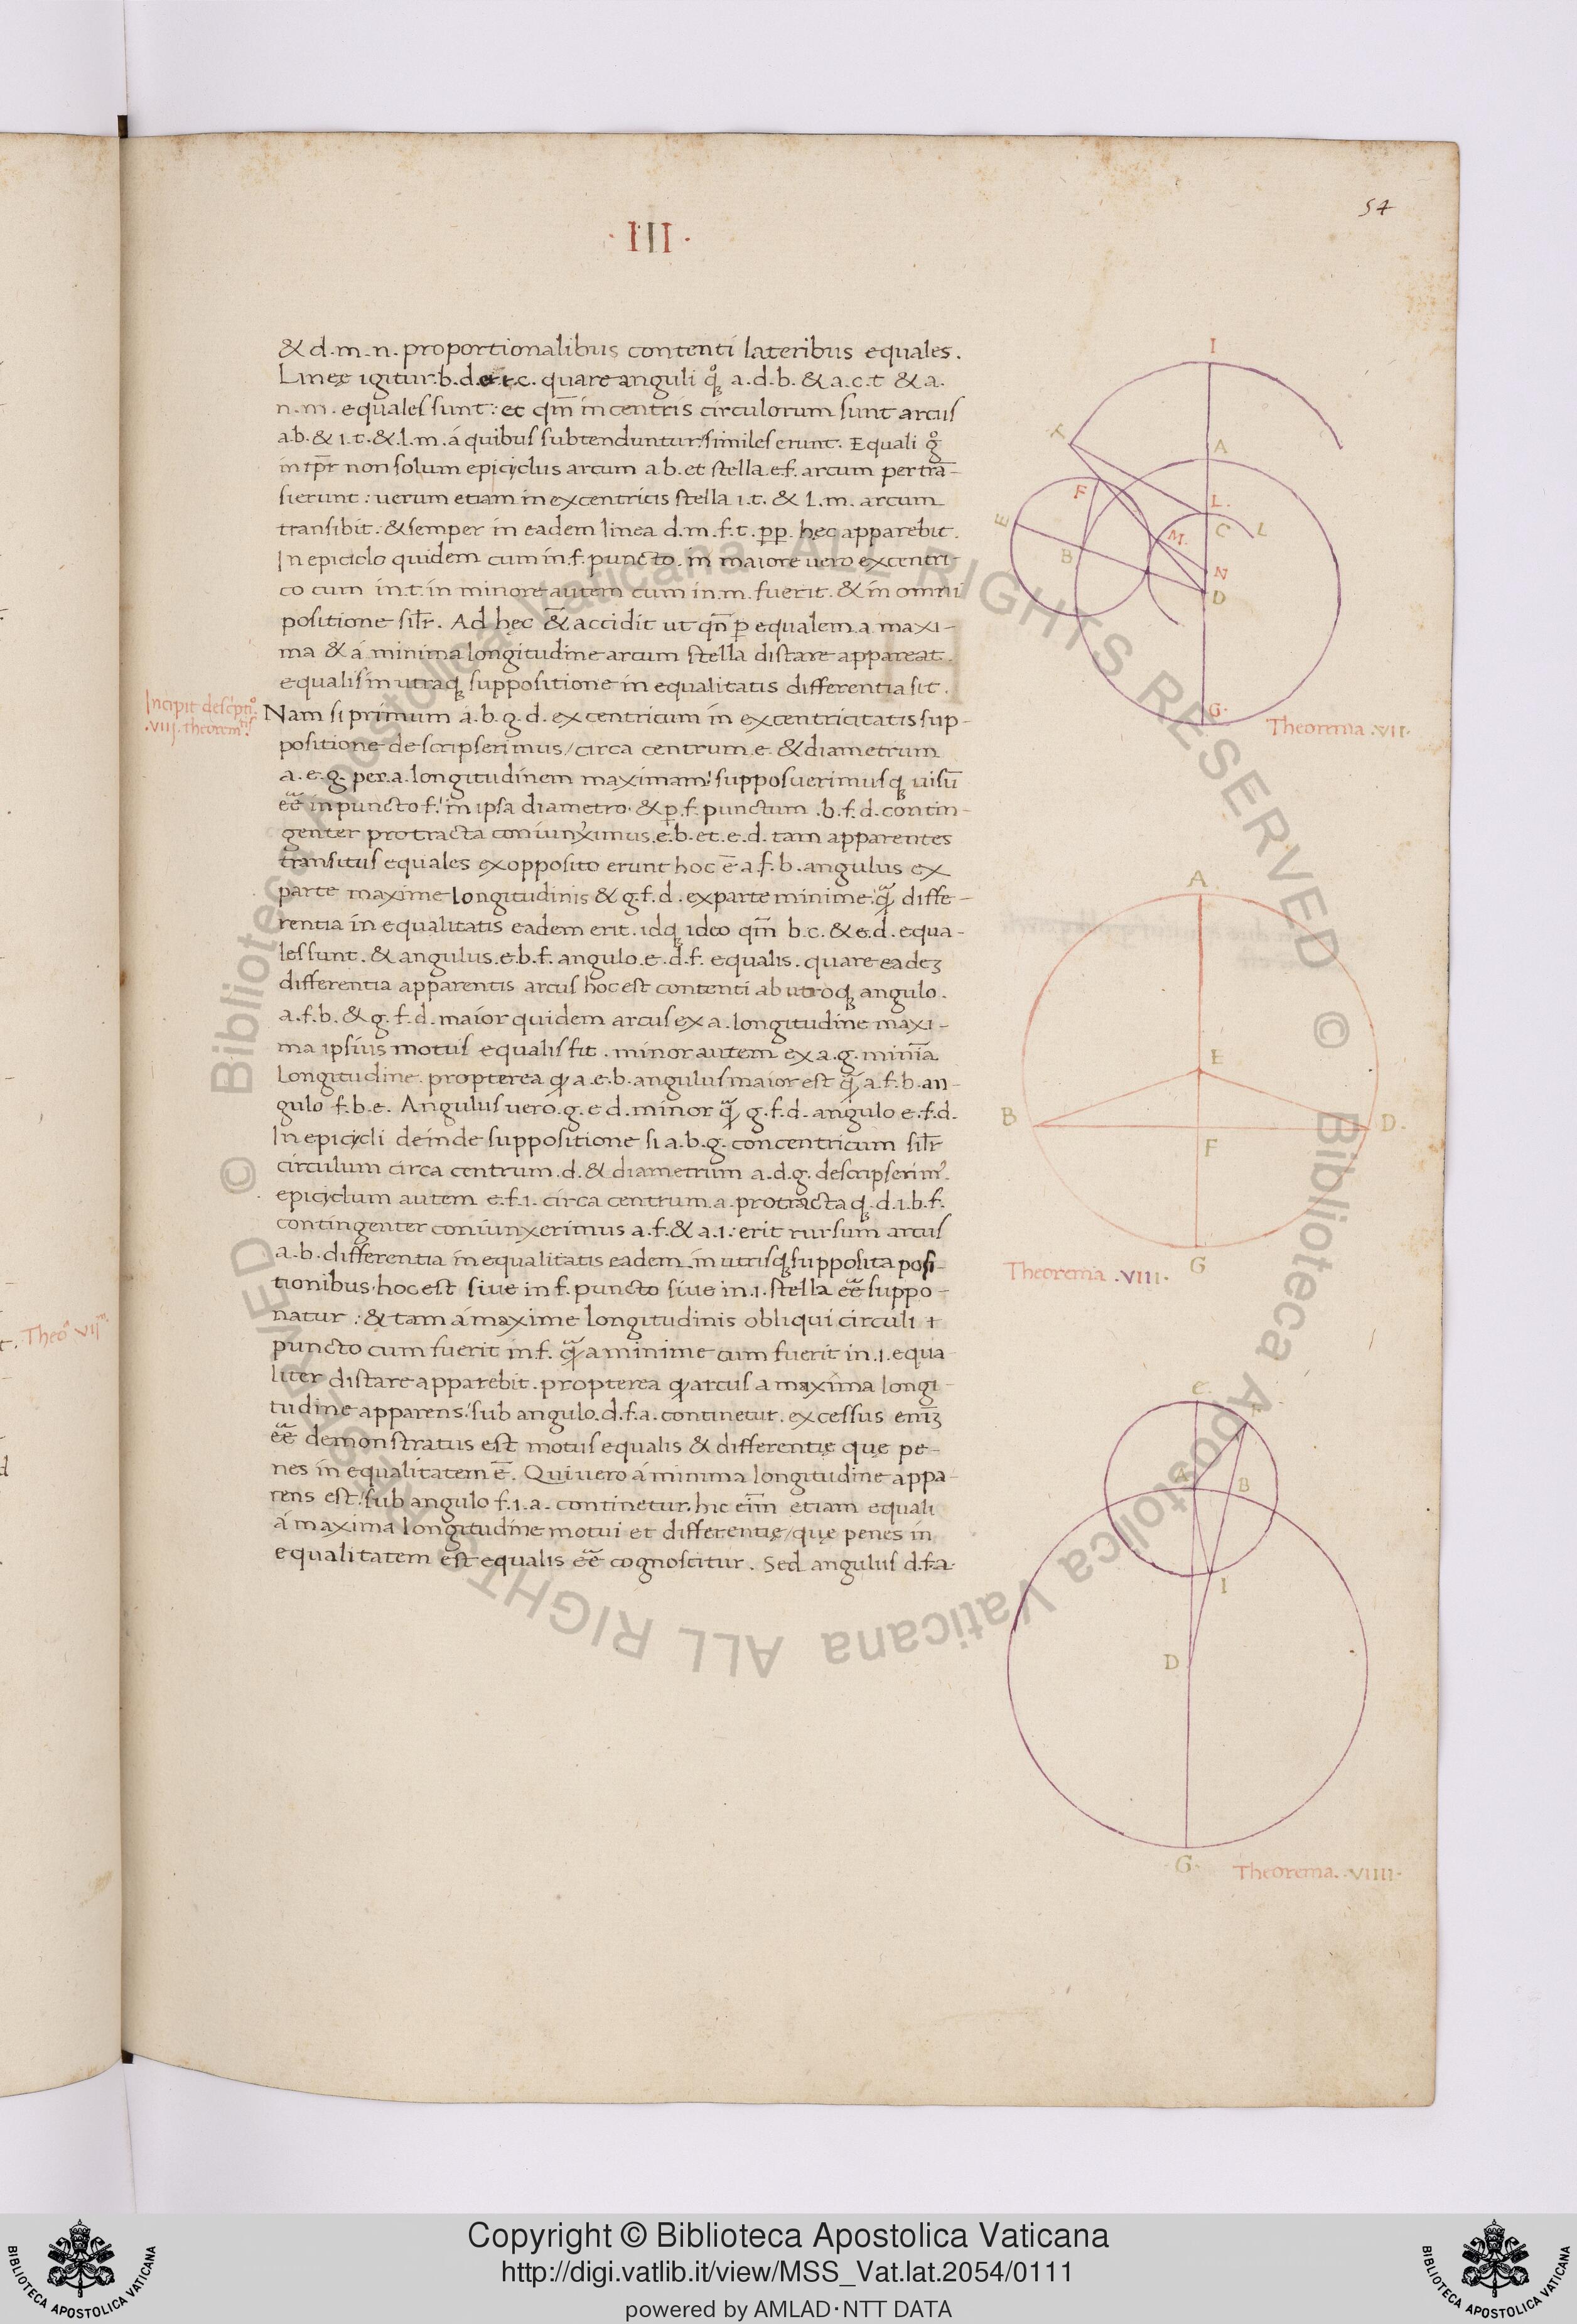 54
· III ·
& d.m.n. proportionalibus contenti lateribus equales.
Lineę igitur.b.d. quare anguli q̊ꝫ a.d.b. & a.c.t & a.
n.m. equales sunt: et qm̅ in centris circulorum sunt arcus
a.b. & i.t. & l.m. á quibus subtenduntur: similes erunt. Equali g̊
in tp̅r non solum epicyclus arcum a b. et stella e.f. arcum per tra̅-
sierunt: uerum etiam in excentricis stella i.t. & l.m. arcum
transibit: & semper in eadem linea d.m.f.t. ꝑꝑ hęc apparebit.
In epiciclo quidem cum in.f. puncto. in maiore uero excentri-
co cum in.t. in minore autem cum in.m. fuerit. & in omni
positione sil̅r. Ad hęc & accidit ut qn̅ ꝑ equalem a maxi-
ma & á minima longitudine arcum stella distare appareat.
equalis in utraqꝫ suppositione in equalitatis differentia sit.
Incipit descptio̊
.VIIJ. theorem
Nam si primum a.b.g.d. excentricum in excentricitatis sup-
positione descripserimus/ circa centrum e. & diametrum
a.e.g. per.a. longitudinem maximam: supposuerimusqꝫ uisu̅
ee̅ in puncto f: in ipsa diametro. & ꝑ.f. punctum .b.f.d. contin-
genter protracta coniunximus.e.b. et.e.d. tam apparentes
transitus equales ex opposito erunt hoc e̅ a.f.b. angulus ex
parte maxime longitudinis & g.f.d. ex parte minime. q̅ diffe-
rentia in equalitatis eadem erit. idqꝫ ideo qm̅ b.c. & e.d. equa-
les sunt. & angulus.e.b.f. angulo.e.d.f. equalis. quare eadeꝫ
differentia apparentis arcus hoc est contenti ab utroqꝫ angulo.
a.f.b. & g.f.d. maior quidem arcus ex a. longitudine maxi-
ma ipsius motus equalis fit. minor autem ex a.g. minia̅
longitudine. propterea ꝙ a.e.b. angulus maior est q̅ a.f.b. an-
gulo f.b.e. Angulus uero.g.e d. minor q̅ g.f.d. angulo e.f.d.
In epicycli deinde suppositione si a.b.g. concentricum sil̅r
circulum circa centrum.d. & diametrum a.d.g. descripserim᷒.
epiciclum autem e.f.i. circa centrum.a. protractaqꝫ.d.i.b.f.
contingenter coniunxerimus a.f. & a.i: erit rursum arcus
a.b. differentia in equalitatis eadem in utrisqꝫ supposita posi-
tionibus. hoc est siue in f. puncto siue in.i. stella ee̅ suppo-
natur: & tam á maxime longitudinis obliqui circuli
puncto cum fuerit in f. q̅ a minime cum fuerit in.i. equa
liter distare apparebit. propterea ꝙ arcus a maxima longi-
tudine apparens: sub angulo.d.f.a. continetur. excessus eni̅ꝫ
ee̅ demonstratus est motus equalis & differentię que pe-
nes in equalitatem e̅. Qui uero á minima longitudine appa-
rens est: sub angulo f.i.a. continetur. hic eim̅ etiam equali
á maxima longitudine motui et differentię/ quę penes in
equalitatem est equalis ee̅ cognoscitur. Sed angulus d.f.a.
I
T
A
F
L.
E
C
L
B
M.
N
D
G.
Theorema .VII.
A
E
B
D.
F
G
Theorema .VIII.
e.
F
A
B
I
D
G.
Theorema. .VIIII.
Copyright © Biblioteca Apostolica Vaticana
http://digi.vatlib.it/view/MSS_Vat.lat.2054/0111
powered by AMLAD·NTT DATA
BIBLIOTECA APOSTOLICA VATICANA
BIBLIOTECA APOSTOLICA VATICANA
© Biblioteca Apostolica Vaticana ALL RIGHTS RESERVED © Biblioteca Apostolica Vaticana ALL RIGHTS RESERVED